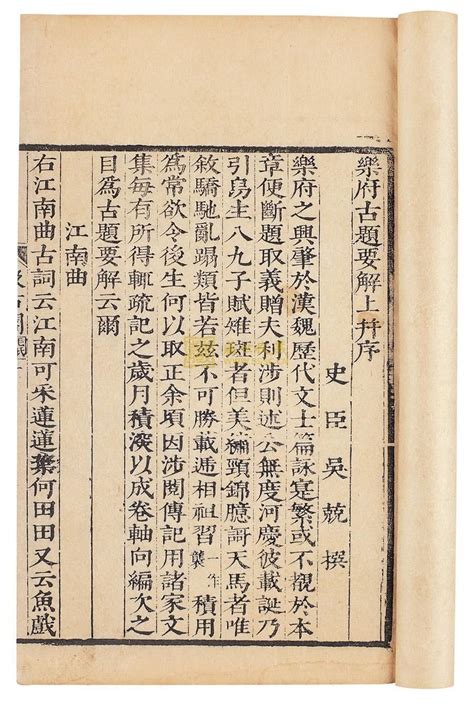 樂府古題要解上并序
史臣吳兢撰
樂府之興肇於漢魏歷代文士篇詠寔繁或不覩於本
章便斷題取義贈夫利涉則述公無度河慶彼載誕乃
引烏生八九子賦雉斑者但美繡頸錦臆謌天馬者唯
敘驕馳亂蹋類皆若茲不可勝載遞相祖習一作襲積用
為常欲令後生何以取正余頃因涉閱傳記用諸家文
集每有所得輒疏記之歲月積深以成卷軸向編次之
目為古題要解云爾
江南曲
右江南曲古詞云江南可采蓮蓮葉何田田又云魚戲